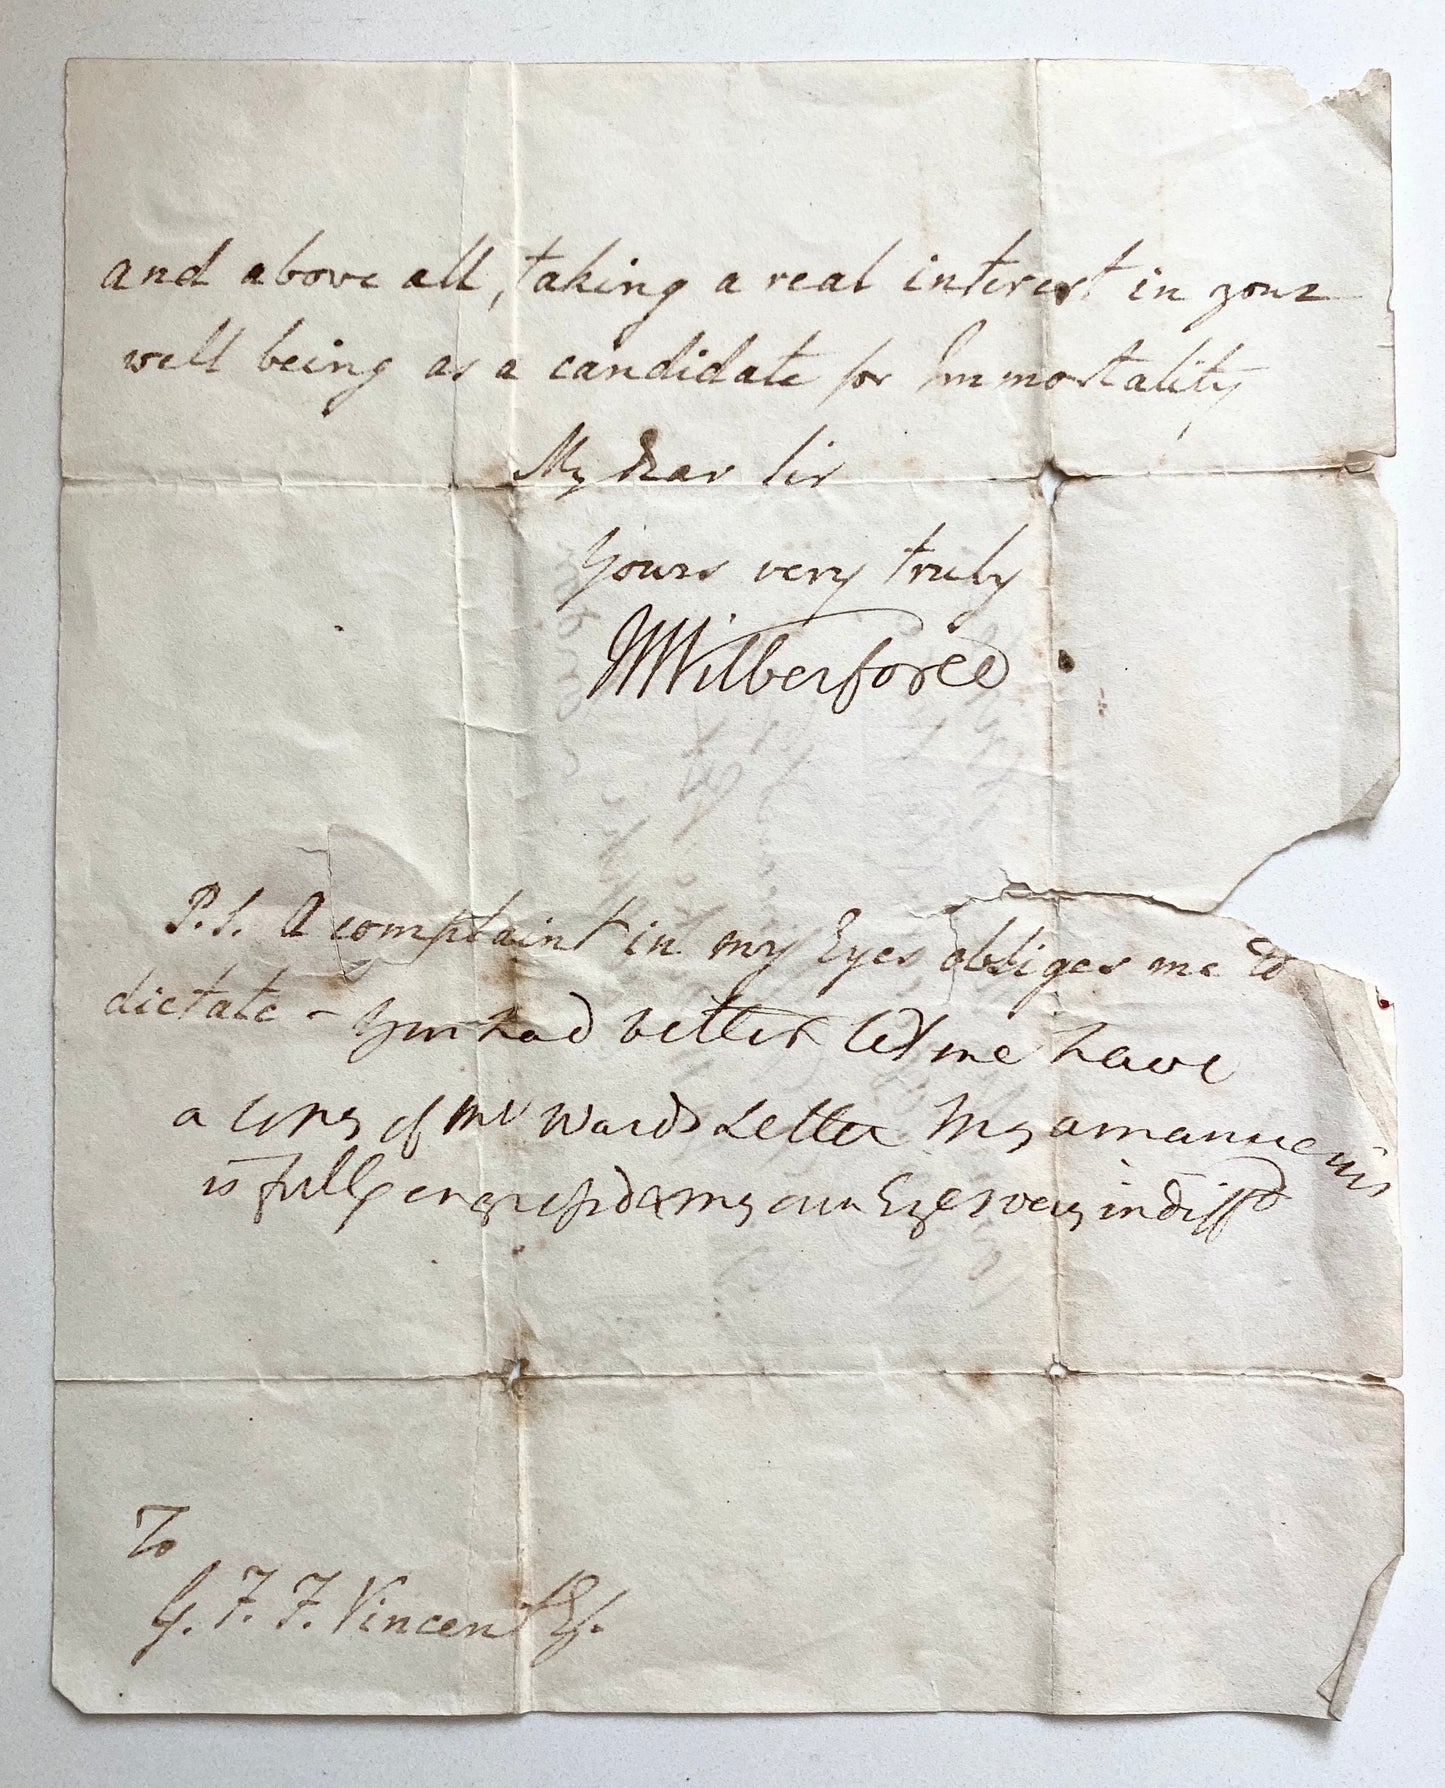 and above all, taking a real interest in your
well being as a candidate for Immortality
My Dear Sir
Yours very truly
W Wilberforce
P.S. A complaint in my Eyes obliges me to
dictate - You had better let me have
a copy of Mr Wards Letter My amanuensis
is fully engrossd & my own Eyes very indiffT
To
G. F. F. Vincent Esq.